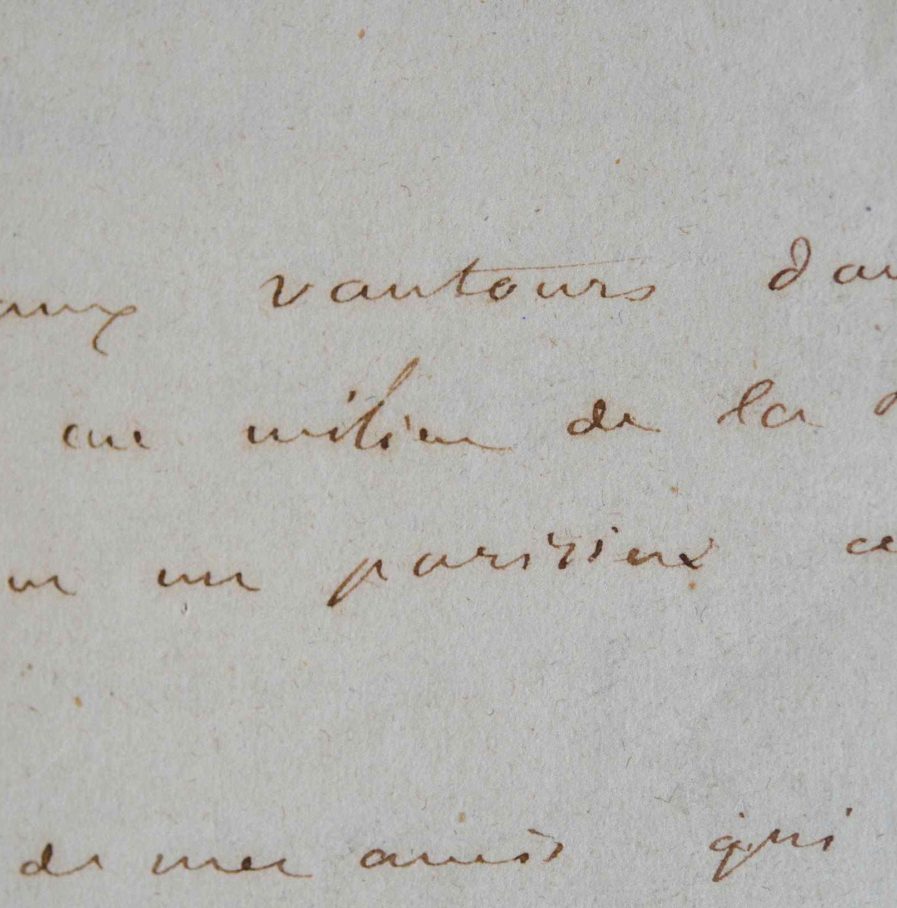 aux vautours dan
au milieu de la
un parisien ce
de mes amis qui